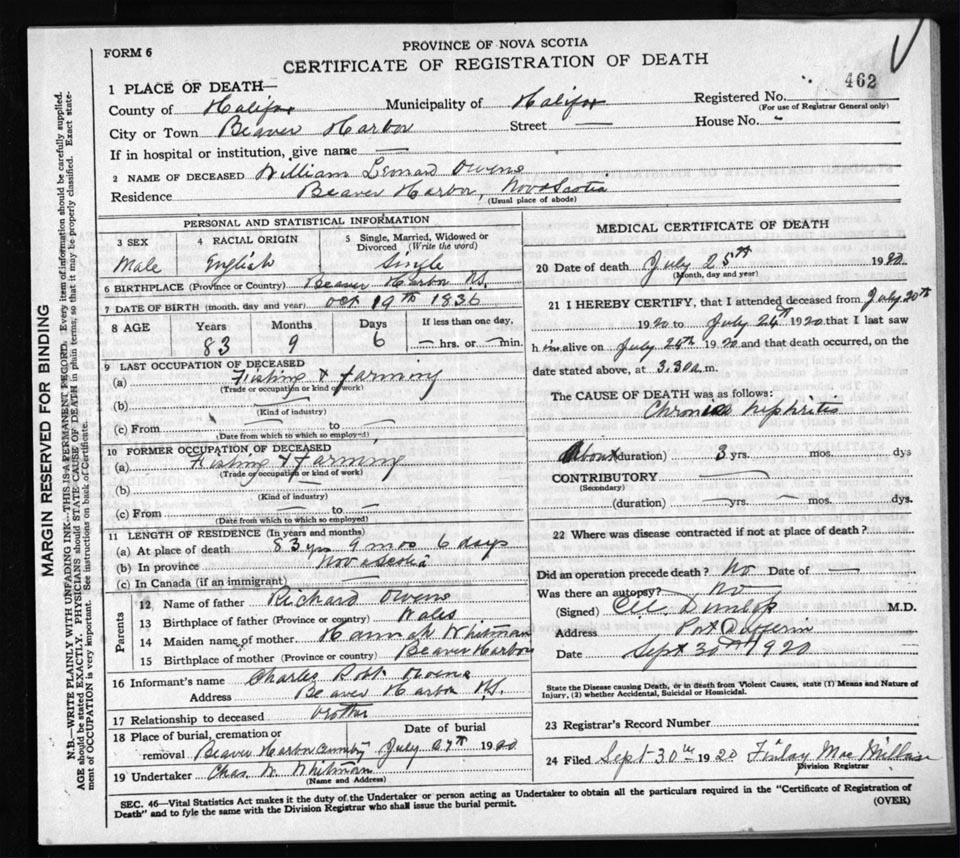 FORM 6
PROVINCE OF NOVA SCOTIA
CERTIFICATE OF REGISTRATION OF DEATH
1 PLACE OF DEATH—
462
County of Halifax Municipality of Halifax Registered No.
(For use of Registrar General only)
City or Town Beaver Harbor Street — House No. -
If in hospital or institution, give name —
2 NAME OF DECEASED William Leonard Owens
Residence Beaver Harbor, Nova Scotia
(Usual place of abode)
PERSONAL AND STATISTICAL INFORMATION
3 SEX 4 RACIAL ORIGIN 5 Single, Married, Widowed or Divorced (Write the word)
Male English Single
6 BIRTHPLACE (Province or Country) Beaver Harbor N.S.
7 DATE OF BIRTH (month, day and year) Oct 19th 1836
8 AGE Years Months Days If less than one day,
83 9 6 — hrs. or — min.
9 LAST OCCUPATION OF DECEASED
(a) Fishing & farming
(Trade or occupation or kind of work)
(b) —
(Kind of industry)
(c) From — to —
(Date from which to which so employed)
10 FORMER OCCUPATION OF DECEASED
(a) Fishing & farming
(Trade or occupation or kind of work)
(b) —
(Kind of industry)
(c) From — to —
(Date from which to which so employed)
11 LENGTH OF RESIDENCE (In years and months)
(a) At place of death 83 yrs 9 mos 6 days
(b) In province Nova Scotia
(c) In Canada (if an immigrant) —
Parents
12 Name of father Richard Owens
13 Birthplace of father (Province or country) Wales
14 Maiden name of mother Hannah Whitman
15 Birthplace of mother (Province or country) Beaver Harbor
16 Informant's name Charles Robt Owens
Address Beaver Harbor N.S.
17 Relationship to deceased brother
18 Place of burial, cremation or removal Beaver Harbor Date of burial July 27th 1920
19 Undertaker Chas. W. Whitman
(Name and Address)
MEDICAL CERTIFICATE OF DEATH
20 Date of death July 25th 1920
(Month, day and year)
21 I HEREBY CERTIFY, that I attended deceased from July 20th
1920 to July 24th 1920 that I last saw
him alive on July 24th 1920 and that death occurred, on the
date stated above, at 3.30 a.m.
The CAUSE OF DEATH was as follows:
Chronic Nephritis
About (duration) 3 yrs. — mos. dys
CONTRIBUTORY —
(Secondary)
(duration) — yrs. — mos. dys.
22 Where was disease contracted if not at place of death?
Did an operation precede death? No Date of —
Was there an autopsy? No
(Signed) Dunlop M.D.
Address Port Dufferin
Date Sept 30th 1920
State the Disease causing Death, or in death from Violent Causes, state (1) Means and Nature of Injury, (2) whether Accidental, Suicidal or Homicidal.
23 Registrar's Record Number
24 Filed Sept 30th 1920 Finlay MacMillan
Division Registrar
SEC. 46—Vital Statistics Act makes it the duty of the Undertaker or person acting as Undertaker to obtain all the particulars required in the "Certificate of Registration of
Death" and to fyle the same with the Division Registrar who shall issue the burial permit. (OVER)
MARGIN RESERVED FOR BINDING
N.B.—WRITE PLAINLY WITH UNFADING INK—THIS IS A PERMANENT RECORD. Every item of information should be carefully supplied.
AGE should be stated EXACTLY. PHYSICIANS should STATE CAUSE OF DEATH in plain terms, so that it may be properly classified. Exact state-
ment of OCCUPATION is very important. See instructions on back of Certificate.